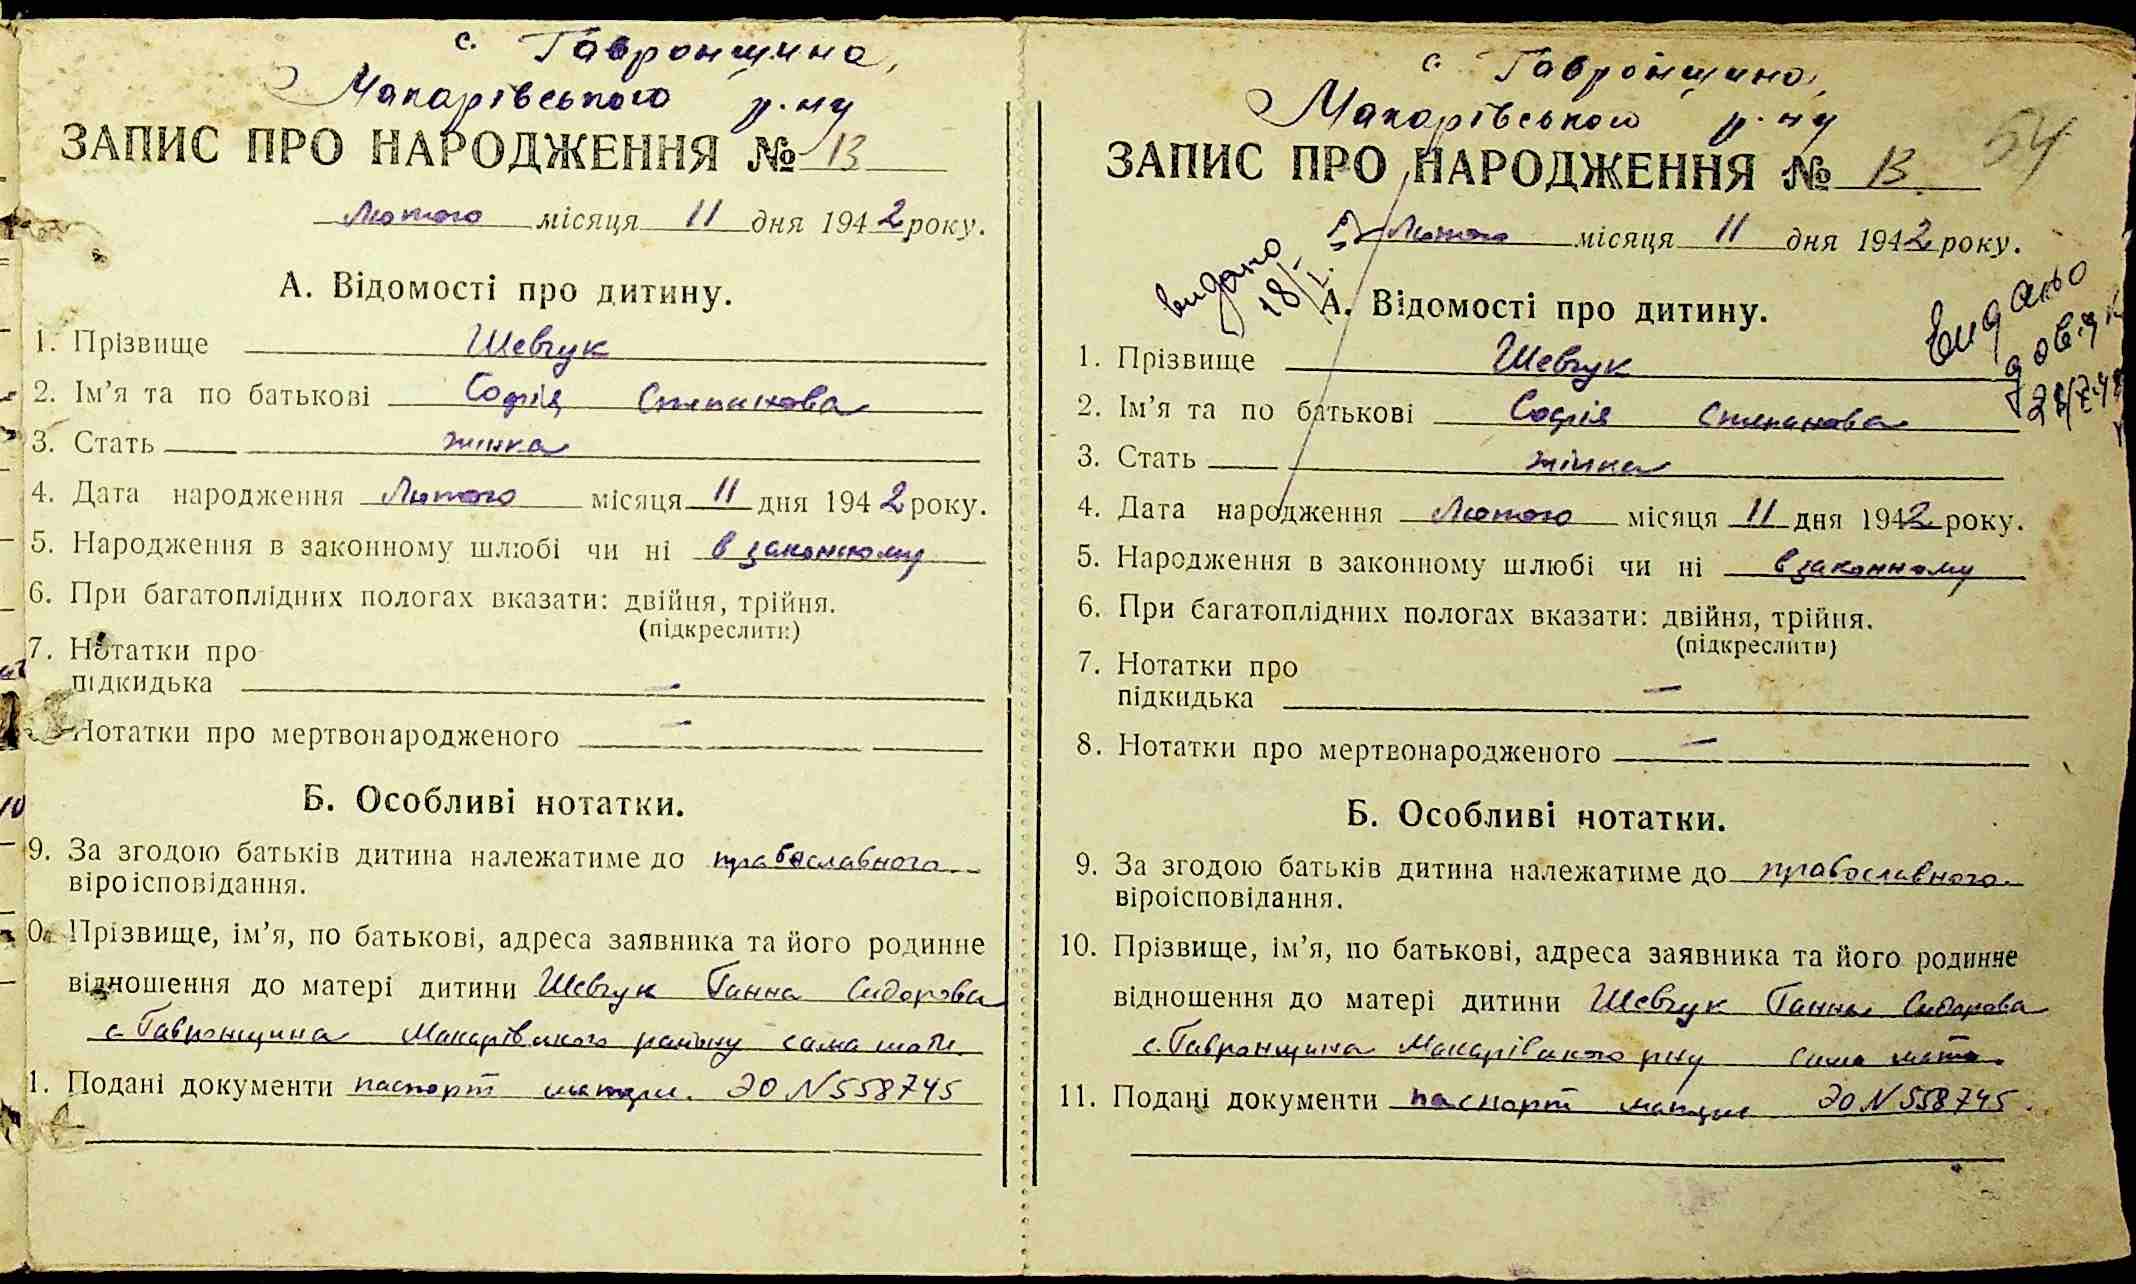 с. Гавронщина,
Макарівського р-ну
ЗАПИС ПРО НАРОДЖЕННЯ № 13
Лютого місяця 11 дня 1942 року.
А. Відомості про дитину.
1. Прізвище Шевчук
2. Ім’я та по батькові Софія Степанова
3. Стать жінка
4. Дата народження Лютого місяця 11 дня 1942 року.
5. Народження в законному шлюбі чи ні в законному
6. При багатоплідних пологах вказати: двійня, трійня.
(підкреслити)
7. Нотатки про
підкидька —
Нотатки про мертвонародженого —
Б. Особливі нотатки.
9. За згодою батьків дитина належатиме до православного
віроісповідання.
0. Прізвище, ім’я, по батькові, адреса заявника та його родинне
відношення до матері дитини Шевчук Ганна Сидорова
с. Гавронщина Макарівського району сама мати.
1. Подані документи паспорт матери. ЭО № 558745
с. Гавронщина,
Макарівського р-ну
54
ЗАПИС ПРО НАРОДЖЕННЯ № 13.
Лютого місяця 11 дня 1942 року.
видано
18/
Видано
довід
А. Відомості про дитину.
1. Прізвище Шевчук
2. Ім’я та по батькові Софія Степанова
3. Стать жінка
4. Дата народження Лютого місяця 11 дня 1942 року.
5. Народження в законному шлюбі чи ні в законному
6. При багатоплідних пологах вказати: двійня, трійня.
(підкреслити)
7. Нотатки про
підкидька —
8. Нотатки про мертвонародженого —
Б. Особливі нотатки.
9. За згодою батьків дитина належатиме до православного
віроісповідання.
10. Прізвище, ім’я, по батькові, адреса заявника та його родинне
відношення до матері дитини Шевчук Ганна Сидорова
с. Гавронщина Макарівського р-ну сама мати.
11. Подані документи паспорт матери ЭО № 558745.